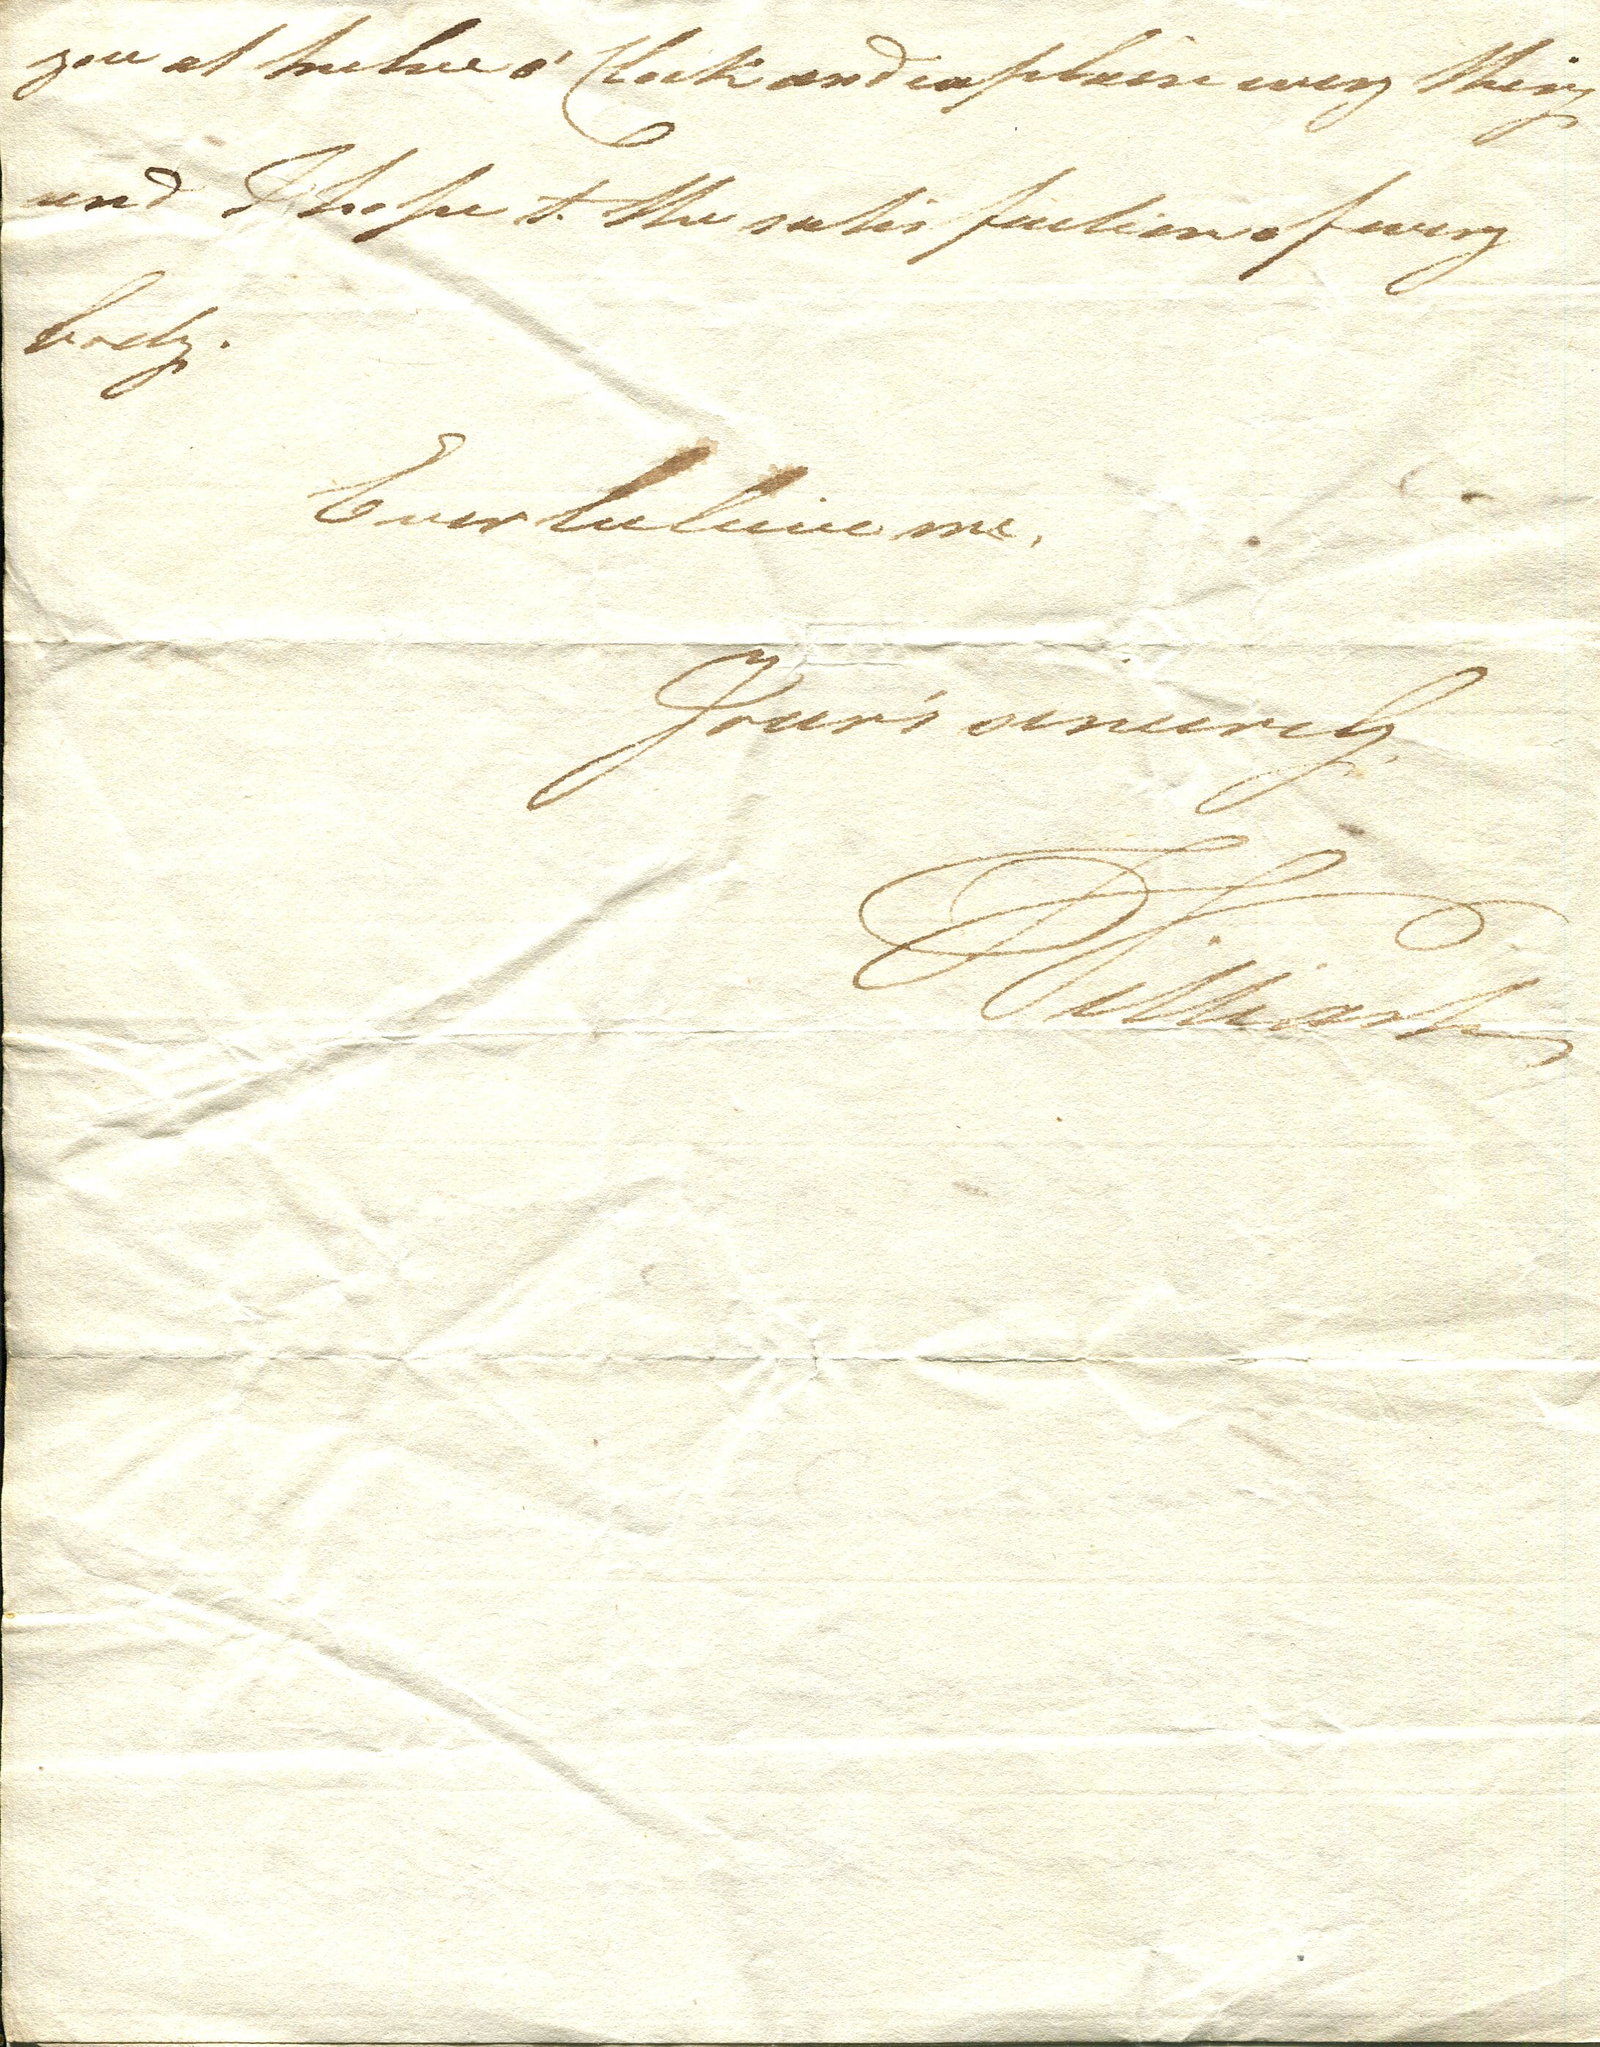 you at twelve o' Clock and explain every thing
and I hope to the satisfaction of every
body.
Ever believe me,
Your's sincerely,
William